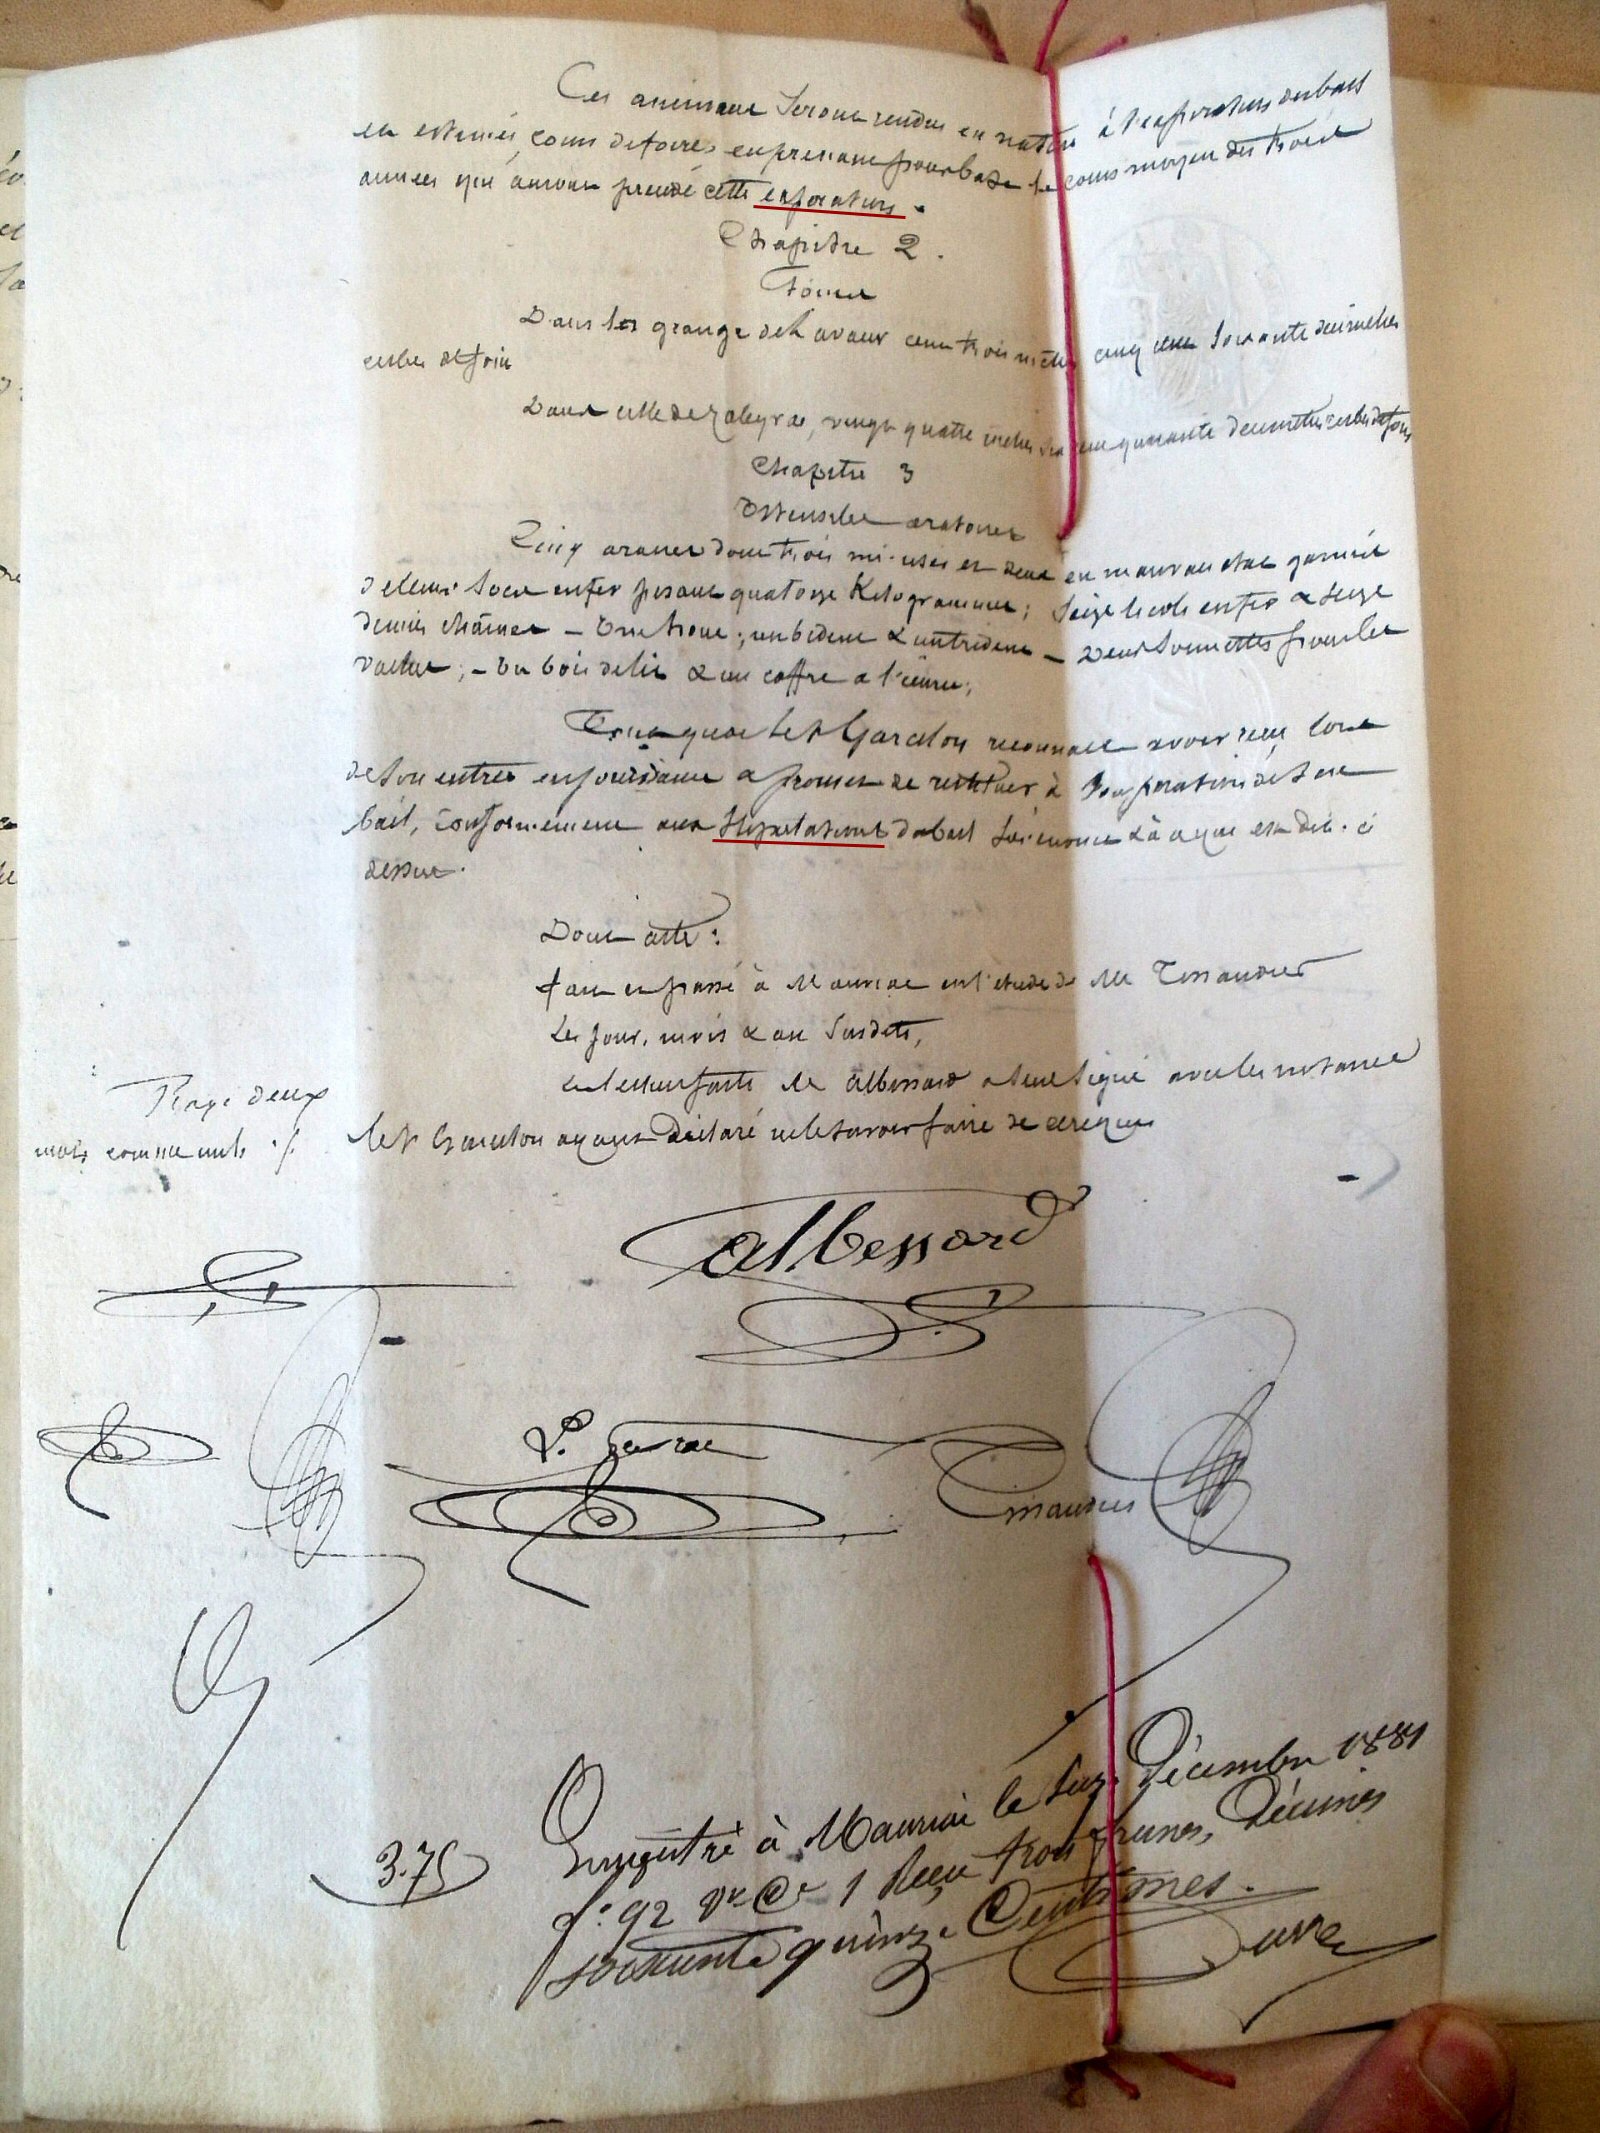 Ces animaux seront rendus en nature à l'expiration du bail
en estimés cours de foires, en prenant pour base le cours moyen des trois
années qui auront précédé cette expiration.
Chapitre 2.
Foins
Dans la grange de Lavaur cent trois mètres cinq cent soixante décimètres
cubes de foin
Dans celle de vingt quatre mètres six cent quarante décimètres cubes de foin
Chapitre 3
Ustensiles aratoires
Cinq araires dont trois mi-usés et deux en mauvais état garnis
de leurs socs en fer pesant quatorze Kilogrammes; seize en fer & seize
chaînes — Une houe; un bident & un trident — Deux sonnettes pour les
vaches; — Un bois de lit & un coffre à
Tout quoi le Sr Garcelon reconnait avoir reçu lors
de son entrée en jouissance & promet de restituer à l'expiration de son
bail, conformément aux stipulations du bail sus-énoncé & à ce qui est dit ci
dessus.
Dont acte:
Fait et passé à Mauriac en l'étude de Me Tissandier
Les jour, mois & an susdits,
et lecture faite Mr Albessard a seul signé avec les notaires
le Sr Garcelon ayant déclaré ne le savoir faire de ce requis
Rayé deux
mots comme nuls ./.
Albessard
Tissandier
Enregistré à Mauriac le Décembre 1881
f° 92 Vo Ce 1 Reçu trois francs, Décimes
soixante quinze Centimes.
3.75